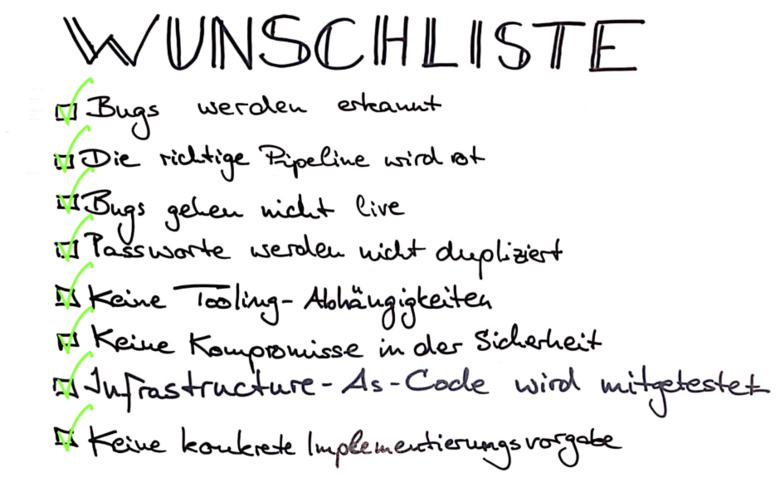 WUNSCHLISTE
Bugs werden erkannt
Die richtige Pipeline wird rot
Bugs gehen nicht live
Passworte werden nicht dupliziert
Keine Tooling-Abhängigkeiten
Keine Kompromisse in der Sicherheit
Infrastructure-As-Code wird mitgetestet
Keine konkrete Implementierungsvorgabe